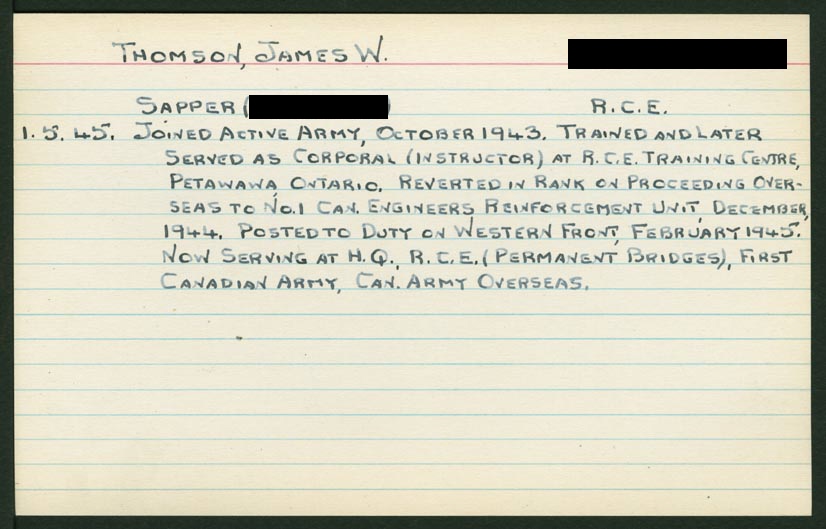 THOMSON, JAMES W.
SAPPER ( ) R.C.E.
1.5.45. JOINED ACTIVE ARMY, OCTOBER 1943. TRAINED AND LATER
SERVED AS CORPORAL (INSTRUCTOR) AT R.C.E. TRAINING CENTRE,
PETAWAWA, ONTARIO. REVERTED IN RANK ON PROCEEDING OVER-
SEAS TO NO.1 CAN. ENGINEERS REINFORCEMENT UNIT, DECEMBER,
1944. POSTED TO DUTY ON WESTERN FRONT, FEBRUARY 1945.
NOW SERVING AT H.Q., R.C.E. (PERMANENT BRIDGES), FIRST
CANADIAN ARMY, CAN. ARMY OVERSEAS.